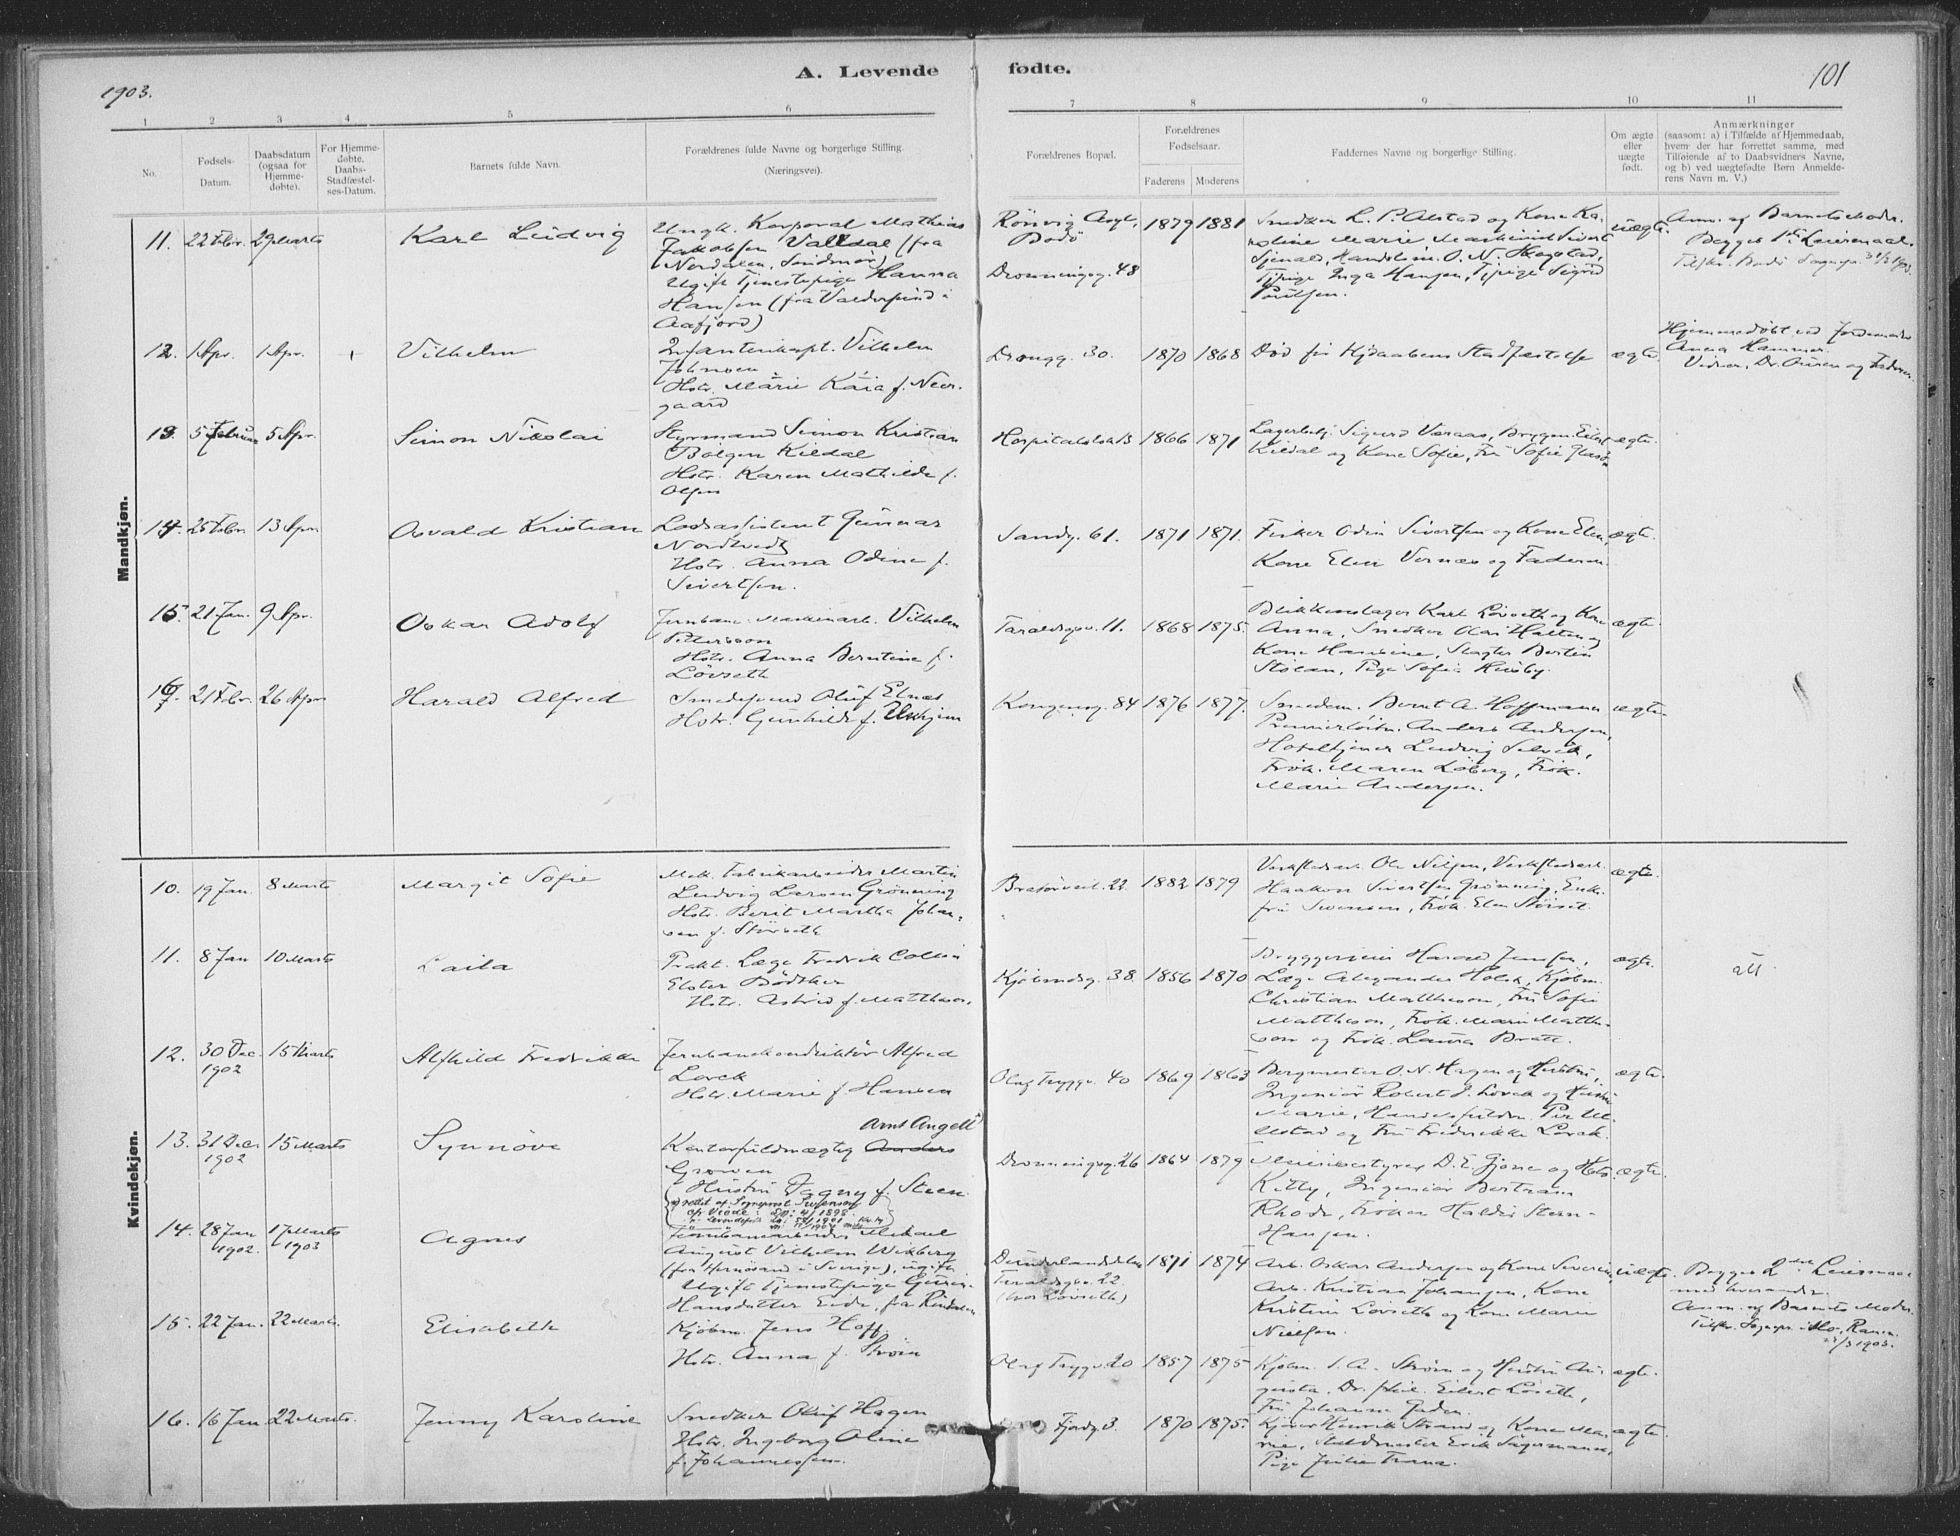 1903.
A. Levende fødte.
101
1 2 3 4 5 6 7 8 9 10 11
No.
Fødsels-Datum.
Daabsdatum (ogsaa for Hjemme-døbte).
For Hjemme-døbte, Daabs-Stadfæstel-ses-Datum.
Barnets fulde Navn.
Forældrenes fulde Navne og borgerlige Stilling.
(Næringsvei).
Forældrenes Bopæl.
Forældrenes Fødselsaar.
Faderens Moderens
Faddernes Navne og borgerlige Stilling.
Om ægte eller uægte født.
Anmærkninger
(saasom: a) i Tilfælde af Hjemmedaab,
hvem der har forrettet samme, med
Tilføiende af to Daabsvidners Navne,
og b) ved uægtefødte Børn Anmelde-
rens Navn m. V.)
Mandkjøn.
11. 22 Febr. 29 Marts
Karl Ludvig
Ungk. Korporal Mathias
Jakobsen Valldal (fra
Nordalen, Søndmør)
Ugift Tjenestepige Hanna
Hansen (fra
Aafjord)
Rønvig Asyl,
Bodø
Dronningsg. 48
1879 1881
Snedker L. P. Alstad og Kone Ka-
roline Marie,
Handelsm. O. N. Hegstad,
Tjpige Inga Hansen, Tjpige Sigrid
Poulsen.
uægte.
Anm. af Barnets Moder.
Begges 1ste Leiermaal.
Tilskr. Bodø Sognepr. 31/3 1903.
12. 1 Apr. 1 Apr. +
Vilhelm
Infanterikapt. Vilhelm
Johnsen
Hstr. Marie Kaia f. Neer-
gaard
Drongg. 30.
1870 1868
Død før Hjdaabens Stadfæstelse
ægte.
Hjemmedøbt ved Jordemoder
Anna Hammer.
Vidner, Dr. og Faderen.
13. 5 Februar 5 Apr.
Simon Nikolai
Styrmand Simon Kristian
Bolgen Kildal
Hstr. Karen Mathilde f.
Olsen
1866 1871
Lagerbetj. Sigurd Veraas, Bryggm. Eilert
Kildal og Kone Sofie, Frk Sofie
ægte.
14. 25 Febr. 13 Apr.
Osvald Kristian
Lodsassistent Gunnar
Nordtvedt
Hstr. Anna Odine f.
Sivertsen.
Sandg. 61.
1871 1871.
Fisker Odin Sivertsen og Kone Elen,
Kone Elen Vernæs og Faderen.
ægte.
15. 21 Jan. 9 Apr.
Oskar Adolf
Jernbane-Maskinarb. Vilhelm
Pettersson
Hstr. Anna Berntine f.
Løvseth
Taraldsgav. 11.
1868 1875.
Blikkenslager Karl Løvseth og Kone
Anna, Snedker Olai Halten og
Kone Hansine, Slagter Bertin
Stølan, Pige Sofie Husby.
ægte.
16. 21 Febr. 26 Apr.
Harald Alfred
Smedsvend Oluf Elnæs
Hstr. Gunhilde f.
Kongensg. 84
1876 1877.
Smedem. Bernt A. Hoffmann
Premierløitn. Anders Andersen,
Hoteltjener Ludvig Selvik,
Frøk. Maren Løberg, Frøk.
Marie Andersen.
ægte.
Kvindekjøn.
10. 19 Jan. 8 Marts
Margit Sofie
Mek. Fabrikarbeider Martin
Ludvig Larsen Grønning
Hstr. Berit Martha Johan-
sen f. Størseth
22
1882 1879
Verkstedsarb. Ole Nilsen, Verkstedsarb.
Haakon Sivertsen Grønning, Enke-
fru Svensen, Frøk. Elen Størset.
ægte.
11. 8 Jan 10 Marts
Laila
Prakt. Læge Fredrik Collin
Elster Bødtker
Hstr. Astrid f. Mattheson.
Kjøbmdsg. 38
1856 1870
Bryggerieier Harald Jensen,
Læge Alexander Holst, Kjøbm.
Christian Mattheson, Fru Sofie
Mattheson, Frøk. Marie Matthe-
son og Frøk. Laura Bratt.
ægte.
att.
12. 30 Dec. 1902 15 Marts
Alfhild Fredrikke
Jernbanekonduktør Alfred
Lorck
Hstr. Marie f. Hansen
Olaf Tryggv. 40
1869 1863
Bergmester O. N. Hagen og Hustru,
Ingeniør Robert J. Lorck og Hustru
Marie, Handelsfuldm. Per
Alstad og Fru Fredrikke Lorck.
ægte.
13. 31 Dec. 1902 15 Marts
Synnøve
Arnt Angell
Kontorfuldmægtig Anders
Growen
(Hustru Dagny f. Steen
Dronningsg. 26
1864 1879
Meieribestyrer D. E. Gjone og Hstr
Kitty, Ingeniør Bertram
Rhode, Frøken Haldis Steen-
Hansen.
ægte.
14. 28 Jan 1902. 17 Marts 1903
Agnes
Jernbanearbeider Mikael
August Vilhelm Wixberg
(fra Hernøsand i Sverige), ugift
Ugift Tjenestepige Guri
Hansdatter Eide, fra Rindalen
Dunderlandsdalen
Taraldsgv. 22
(hos Løvseth)
1871 1874
Arb. Oskar Andersen og Kone Severine,
Arb. Kristian Johansen, Kone
Kristine Løvseth og Kone Marie
Nielsen.
uægte.
Begges 2det Leiermaal
med hverandre.
Anm. af Barnets Moder.
Tilskr. Sognepr. i Mo, Ranen
1903.
15. 22 Jan. 22 Marts
Elisabeth
Kjøbm. Jens Hoff
Hstr. Anna f. Strøm
Olaf Tryggv. 20
1857 1875
Kjøbm. S. A. Strøm og Hustru Au-
gusta, Dr. phil. Eilert Løseth,
Fru Johanne Gaden.
ægte.
16. 16 Jan 22 Marts.
Jenny Karoline
Snedker Oluf Hagen
Hstr. Ingeborg Oline
f. Johannessen.
Fjordg. 3.
1870 1875.
Henrik Strand og Kone Ma-
rie, Erik Sagermann,
Pige Julie Trana.
ægte.